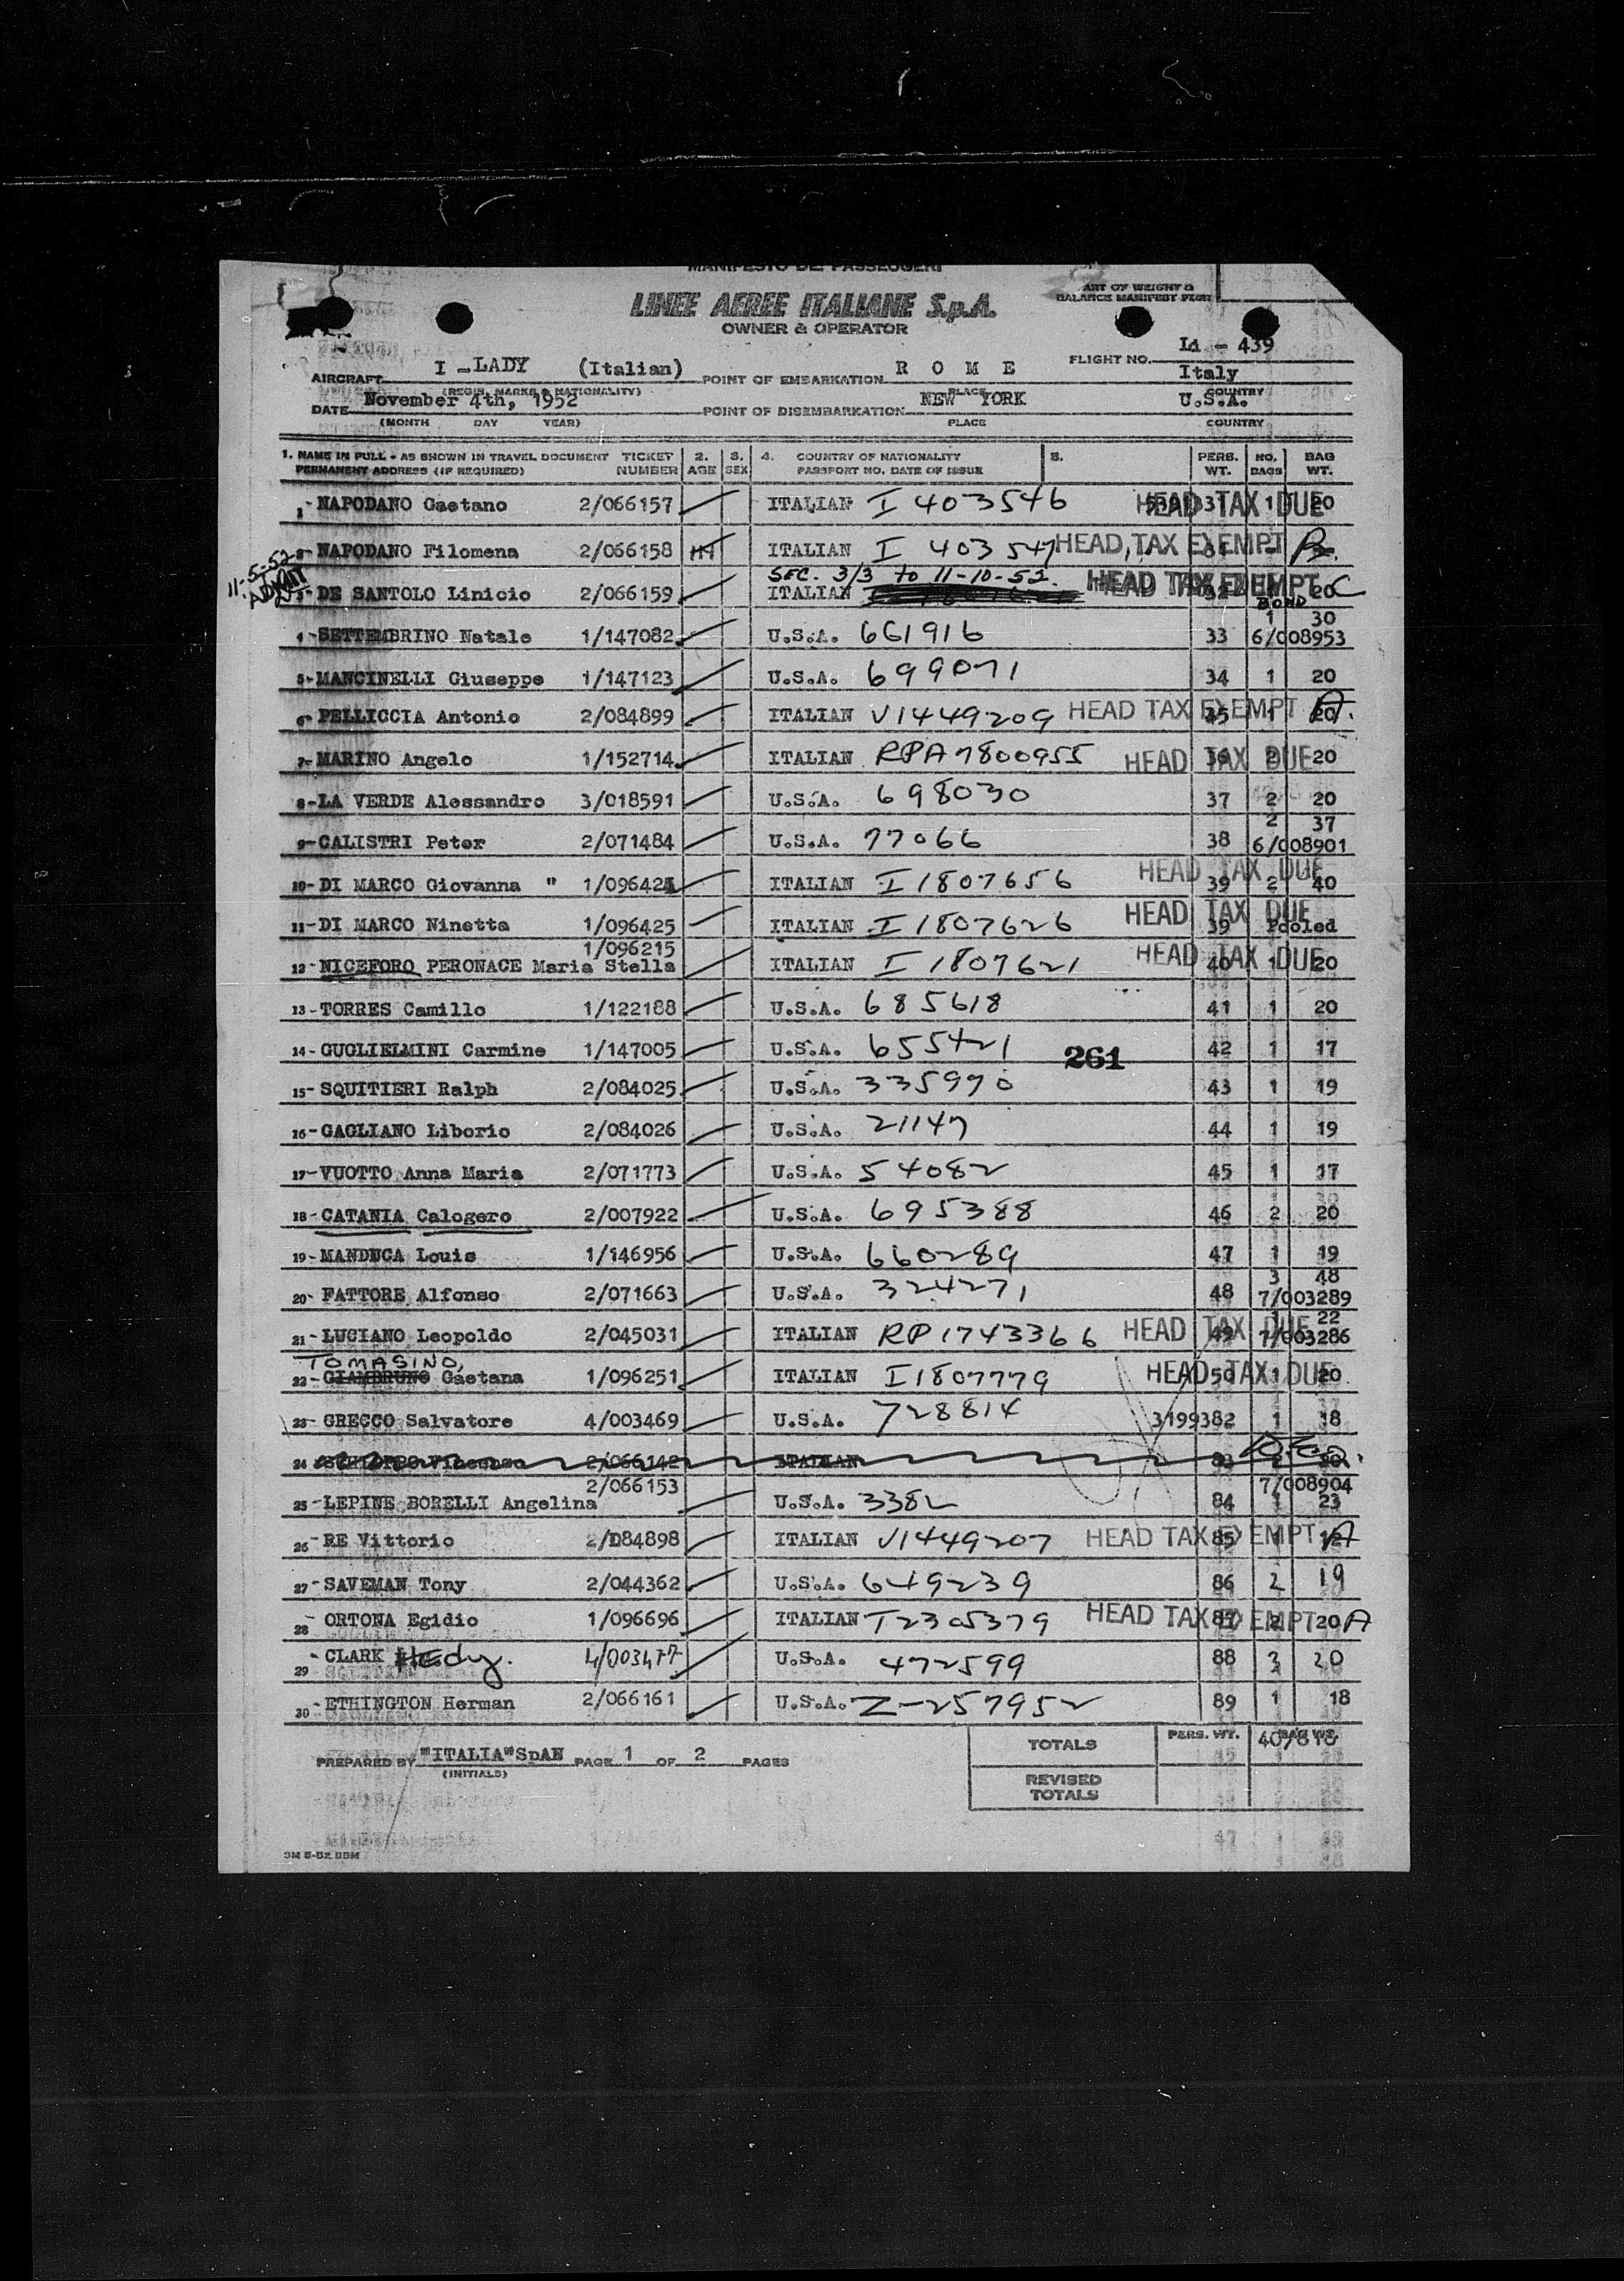 MANIFESTO DEI PASSEGGERI
LINEE AEREE ITALIANE S.p.A.
OWNER & OPERATOR
ART OF WEIGHT &
BALANCE MANIFEST FORM
FLIGHT NO. Li - 439
AIRCRAFT I - LADY (Italian) POINT OF EMBARKATION R O M E Italy
(REGIS. MARKS & NATIONALITY) PLACE COUNTRY
DATE November 4th, 1952 POINT OF DISEMBARKATION NEW YORK U.S.A.
(MONTH DAY YEAR) PLACE COUNTRY
1. NAME IN FULL - AS SHOWN IN TRAVEL DOCUMENT TICKET 2. 3. 4. COUNTRY OF NATIONALITY 5. PERS. NO. BAG
PERMANENT ADDRESS (IF REQUIRED) NUMBER AGE SEX PASSPORT NO. DATE OF ISSUE WT. BAGS WT.
1- NAPODANO Gaetano 2/066157 ITALIAN I 403546 HEAD TAX DUE 1 20
2- NAPODANO Filomena 2/066158 ITALIAN I 403547 HEAD TAX EXEMPT
11-5-52 ADMIT
SEC. 3/3 to 11-10-52.
3- DE SANTOLO Linicio 2/066159 ITALIAN HEAD TAX EXEMPT C 20
BOND
1 30
4- SETTEMBRINO Natale 1/147082 U.S.A. 661916 33 6/008953
5- MANCINELLI Giuseppe 1/147123 U.S.A. 699071 34 1 20
6- PELLICCIA Antonio 2/084899 ITALIAN V1449209 HEAD TAX EXEMPT A. 35 1 20
7- MARINO Angelo 1/152714 ITALIAN RPA7800955 HEAD TAX DUE 36 2 20
8- LA VERDE Alessandro 3/018591 U.S.A. 698030 37 2 20
2 37
9- CALISTRI Peter 2/071484 U.S.A. 77066 38 6/008901
10- DI MARCO Giovanna " 1/096424 ITALIAN I1807656 HEAD TAX DUE 39 2 40
11- DI MARCO Ninetta 1/096425 ITALIAN I1807626 HEAD TAX DUE 39 Pooled
1/096215
12- NICEFORO PERONACE Maria Stella ITALIAN I 1807621 HEAD TAX DUE 40 1 20
13- TORRES Camillo 1/122188 U.S.A. 685618 41 1 20
14- GUGLIELMINI Carmine 1/147005 U.S.A. 655421 261 42 1 17
15- SQUITIERI Ralph 2/084025 U.S.A. 335970 43 1 19
16- GAGLIANO Liborio 2/084026 U.S.A. 21147 44 1 19
17- VUOTTO Anna Maria 2/071773 U.S.A. 54082 45 1 17
18- CATANIA Calogero 2/007922 U.S.A. 695388 46 2 20
19- MANDUCA Louis 1/146956 U.S.A. 660289 47 1 19
3 48
20- FATTORE Alfonso 2/071663 U.S.A. 324271 48 7/003289
1 22
21- LUCIANO Leopoldo 2/045031 ITALIAN RP1743366 HEAD TAX DUE 49 7/003286
TOMASINO,
22- GIAMBRUNO Gaetana 1/096251 ITALIAN I1807779 HEAD TAX DUE 50 1 20
23- GRECCO Salvatore 4/003469 U.S.A. 728814 3199382 1 18
24 2/066142 ITALIAN
2/066153 7/008904
25- LEPINE BORELLI Angelina U.S.A. 3382 84 1 23
26- RE Vittorio 2/084898 ITALIAN V1449207 HEAD TAX EXEMPT A 85 1 12
27- SAVEMAN Tony 2/044362 U.S.A. 649239 86 2 19
28- ORTONA Egidio 1/096696 ITALIAN T2305379 HEAD TAX EXEMPT A 87 2 20
29- CLARK Hedy. 4/003477 U.S.A. 472599 88 2 20
30- ETHINGTON Herman 2/066161 U.S.A. Z-257952 89 1 18
PREPARED BY "ITALIA"SpAN PAGE 1 OF 2 PAGES TOTALS PERS. WT. BAG WT.
(INITIALS)
REVISED
TOTALS
3M 5-52 BBM